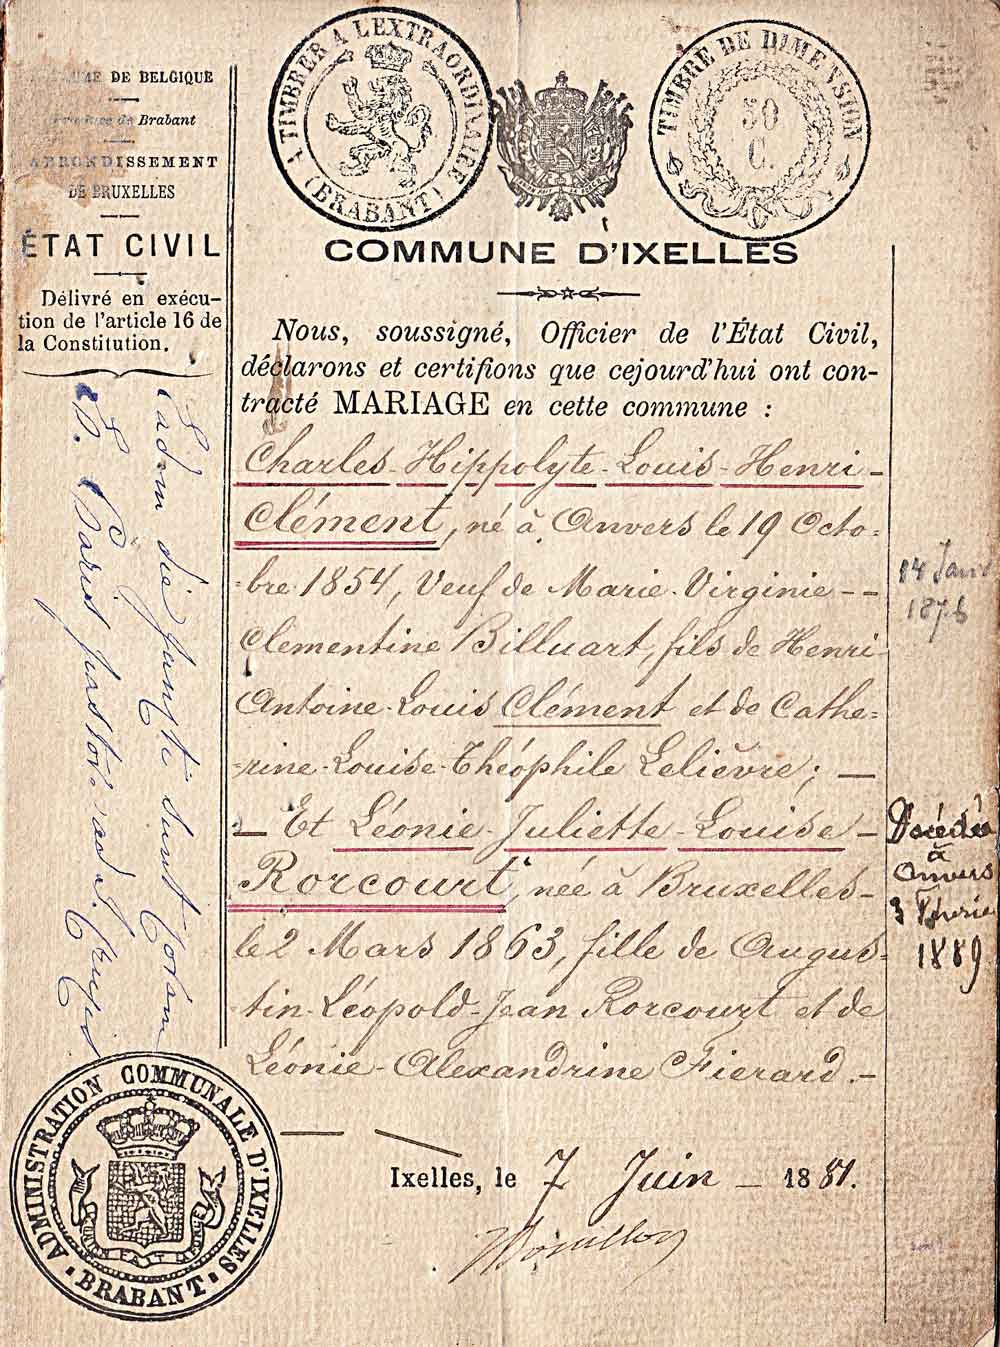 DE BELGIQUE
Province de Brabant
ARRONDISSEMENT
DE BRUXELLES
ÉTAT CIVIL
Délivré en exécu-
tion de l'article 16 de
la Constitution.
Eadem die juncti sunt coram
E. Parit
TIMBRER A L'EXTRAORDINAIRE
(BRABANT)
TIMBRE DE DIMENSION
50
C.
COMMUNE D'IXELLES
Nous, soussigné, Officier de l'État Civil,
déclarons et certifions que cejourd'hui ont con-
tracté MARIAGE en cette commune :
Charles-Hippolyte-Louis-Henri-
Clément, né à Anvers le 19 Octo=
=bre 1854, Veuf de Marie-Virginie--
Clementine Billuart, fils de Henri-
Antoine-Louis Clément et de Cathe=
=rine-Louise-Théophile Lelièvre; —
— Et Léonie-Juliette-Louise-
Rorcourt, née à Bruxelles-
le 2 Mars 1863, fille de Augus=
=tin-Léopold-Jean Rorcourt et de
Léonie-Alexandrine Fierard.-
14 Janv
1876
Décédée
à
Anvers
3 Février
1889
Ixelles, le 7 Juin — 1881.
ADMINISTRATION COMMUNALE D'IXELLES
BRABANT